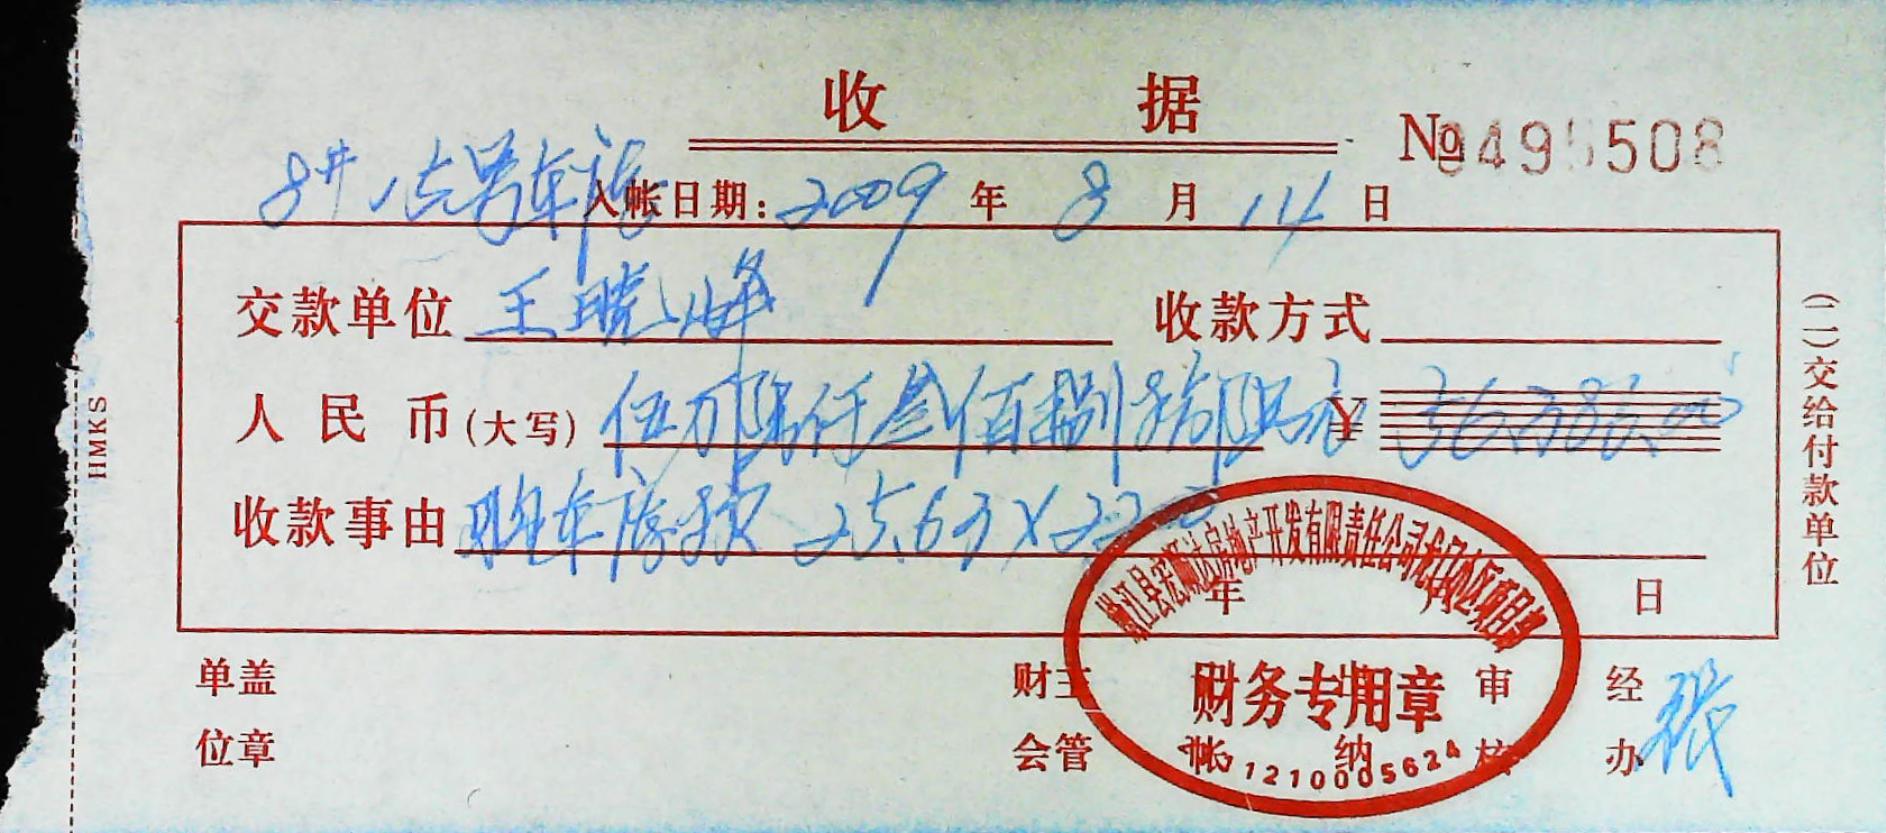 收 据
№ 495508
8# 15号车库
入帐日期：2009 年 8 月 14 日
交款单位 王晓峰 收款方式
人民币(大写) 伍万陆仟叁佰捌拾陆元 ¥ 56386.00
收款事由 购车库款 25.63×2200
年 月 日
单位盖章 财会主管 记帐 出纳 审核 经办 张
(二)交给付款单位
HMKS
房地产开发有限责任公司
财务专用章
1210005624